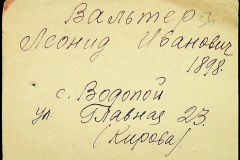 Вальтер
Леонид Иванович
1898.
с. Водопой
ул. Главная 23.
(Кирова)